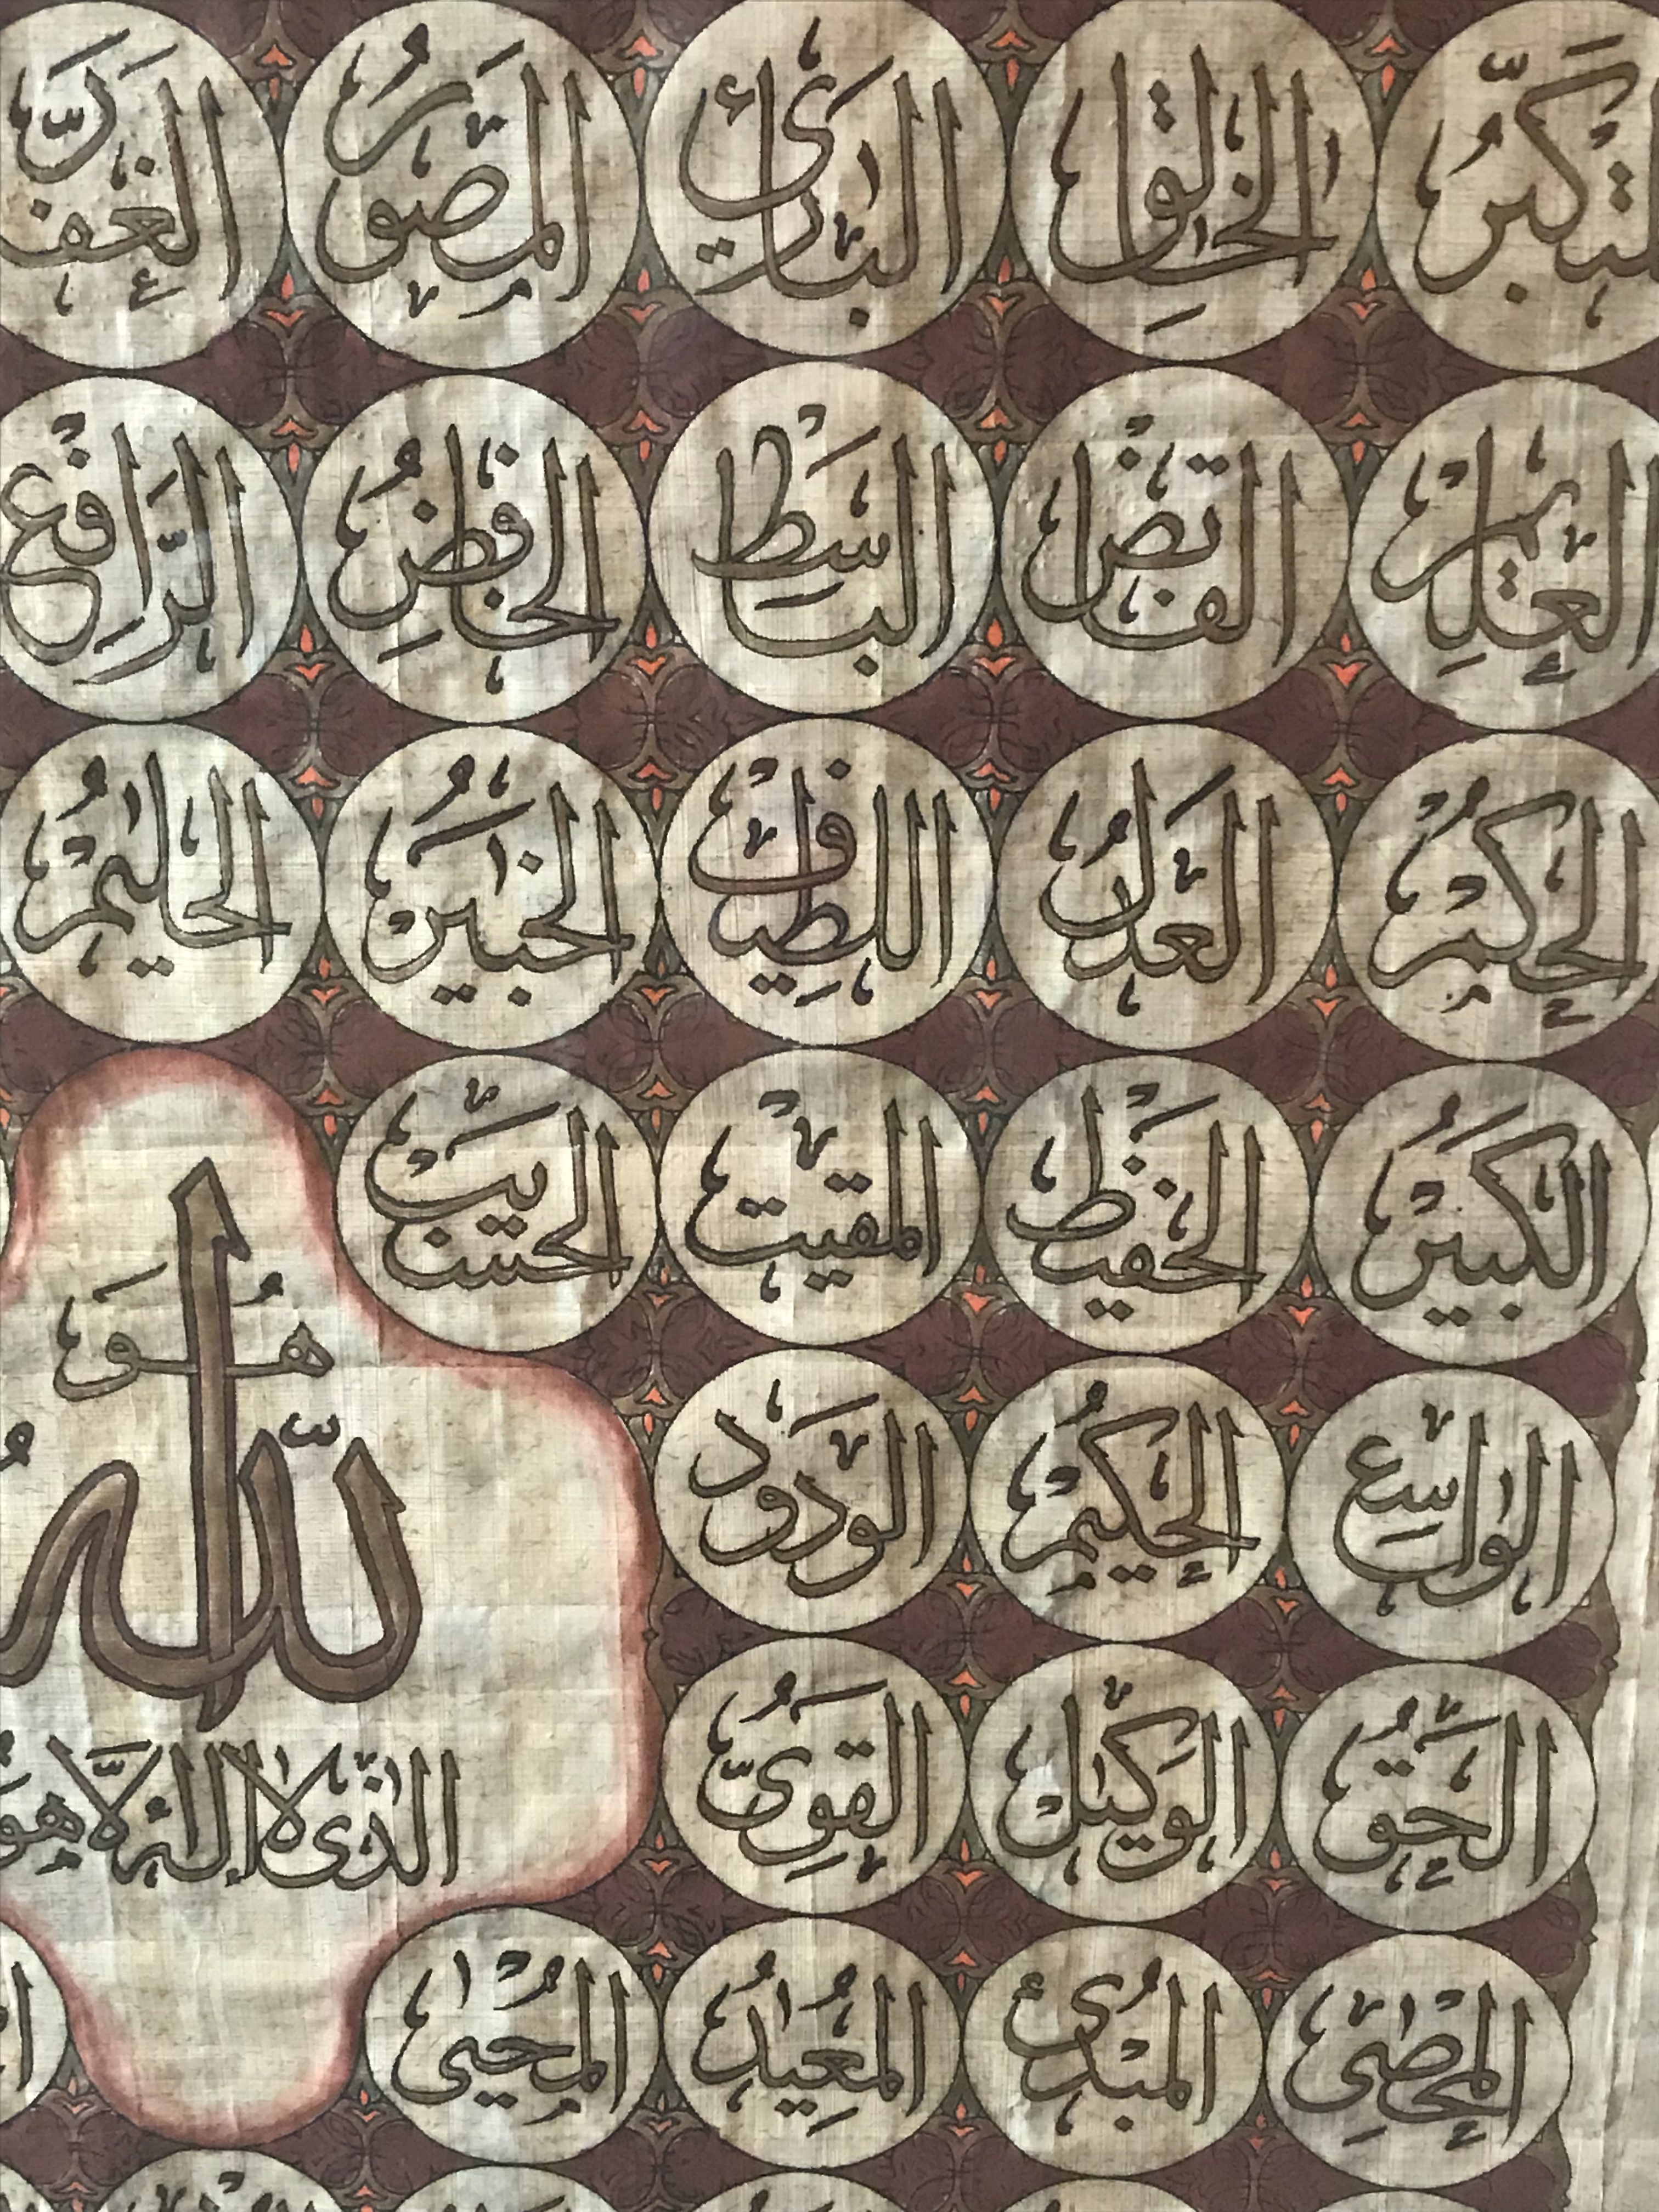 المتكبر الخالق البارئ المصور الغفار
العليم القابض الباسط الخافض الرافع
الحكم العدل اللطيف الخبير الحليم
الكبير الحفيظ المقيت الحسيب
هو
الله
الواسع الحكيم الودود
الحق الوكيل القوي
الذي لا إله إلا هو
المحصي المبدئ المعيد المحيي